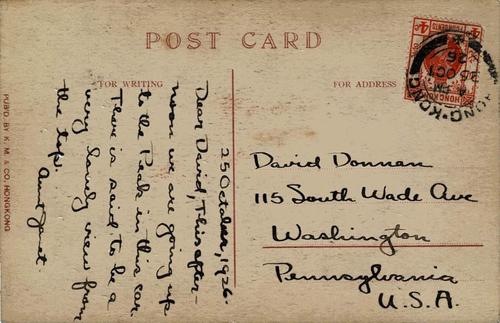 POST CARD
FOR WRITING
FOR ADDRESS
25 October, 1926.
Dear David, This after-
noon we are going up
to the Peak in this car.
There is said to be a
very lovely view from
the top.
Aunt Janet.
David Donnan
115 South Wade Ave
Washington
Pennsylvania
U.S.A.
HONG-KONG
PM
25 OC
26
HONG KONG
PUBD. BY K. M. & CO., HONGKONG